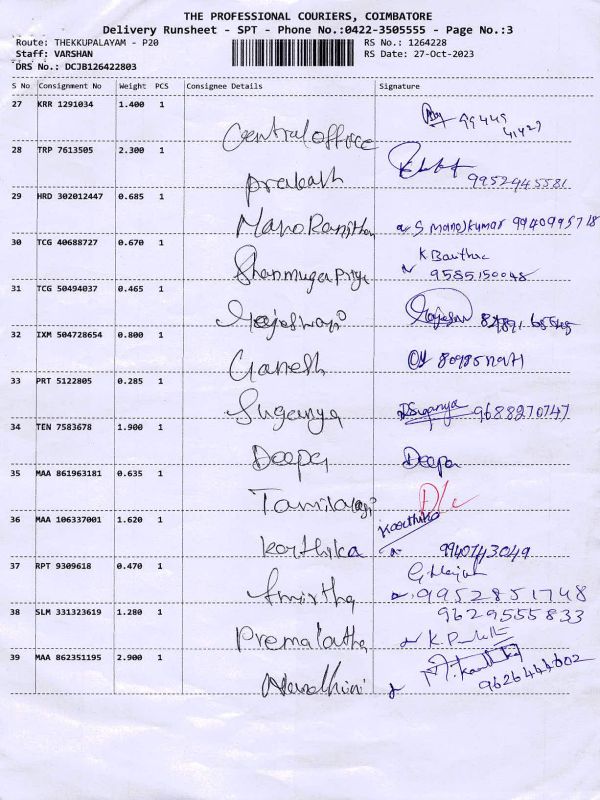 THE PROFESSIONAL COURIERS, COIMBATORE
Delivery Runsheet - SPT - Phone No.:0422-3505555 - Page No.:3
Route: THEKKUPALAYAM - P20 RS No.: 1264228
Staff: VARSHAN RS Date: 27-Oct-2023
DRS No.: DCJB126422803
S No Consignment No Weight PCS Consignee Details Signature
27 KRR 1291034 1.400 1
Central office 99449
41427
28 TRP 7613505 2.300 1
prakash 9952945581
29 HRD 302012447 0.685 1
Mano Ranjitham S. Manojkumar 9940995718
30 TCG 40688727 0.670 1
Shanmuga Priya
9585150048
31 TCG 50494037 0.465 1
Rajeswari
32 IXM 504728654 0.800 1
Ganesh
33 PRT 5122805 0.285 1
Suganya Suganya 9688270747
34 TEN 7583678 1.900 1
Deepa Deepa
35 MAA 861963181 0.635 1
Tamilarasi D/c
36 MAA 106337001 1.620 1
Karthika
Karthika 9940743049
37 RPT 9309618 0.470 1
Amirtha 9952851748
38 SLM 331323619 1.280 1
9629555833
Premalatha
39 MAA 862351195 2.900 1
Nandhini 9626444602